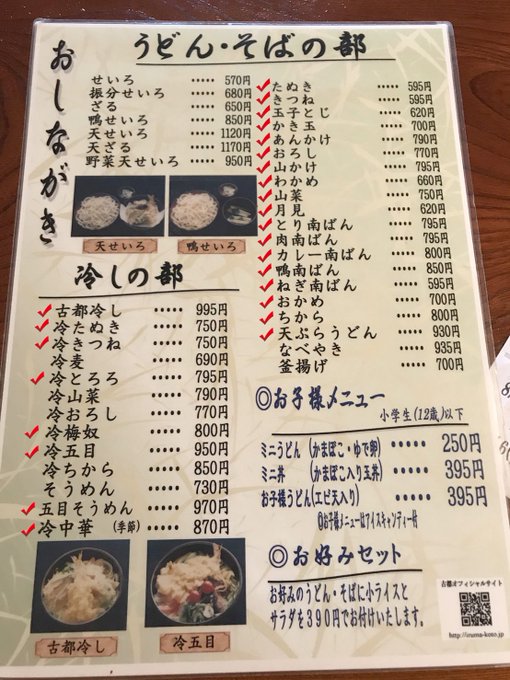 おしながき
うどん・そばの部
せいろ ・・・・・ 570円
振分せいろ ・・・・・ 680円
ざる ・・・・・ 650円
鴨せいろ ・・・・・ 850円
天せいろ ・・・・・ 1120円
天ざる ・・・・・ 1170円
野菜天せいろ ・・・・・ 950円
天せいろ
鴨せいろ
冷しの部
古都冷し ・・・・・ 995円
冷たぬき ・・・・・ 750円
冷きつね ・・・・・ 750円
冷麦 ・・・・・ 690円
冷とろろ ・・・・・ 795円
冷山菜 ・・・・・ 790円
冷おろし ・・・・・ 770円
冷梅奴 ・・・・・ 800円
冷五目 ・・・・・ 950円
冷ちから ・・・・・ 850円
そうめん ・・・・・ 730円
五目そうめん ・・・・・ 970円
冷中華 (季節) ・・・・・ 870円
古都冷し
冷五目
たぬき ・・・・・ 595円
きつね ・・・・・ 595円
玉子とじ ・・・・・ 620円
かき玉 ・・・・・ 700円
あんかけ ・・・・・ 790円
おろし ・・・・・ 770円
山かけ ・・・・・ 795円
わかめ ・・・・・ 660円
山菜 ・・・・・ 750円
月見 ・・・・・ 620円
とり南ばん ・・・・・ 795円
肉南ばん ・・・・・ 795円
カレー南ばん ・・・・・ 800円
鴨南ばん ・・・・・ 850円
ねぎ南ばん ・・・・・ 595円
おかめ ・・・・・ 700円
ちから ・・・・・ 800円
天ぷらうどん ・・・・・ 930円
なべやき ・・・・・ 935円
釜揚げ ・・・・・ 700円
◎お子様メニュー
小学生(12歳)以下
ミニうどん (かまぼこ・ゆで卵) ・・・・・ 250円
ミニ丼 (かまぼこ入り玉丼) ・・・・・ 395円
お子様うどん(エビ天入り) ・・・・・ 395円
お子様メニューはアイスキャンディー付
◎お好みセット
お好みのうどん・そばに小ライスと
サラダを390円でお付けいたします。
古都オフィシャルサイト
http://iruma-koto.jp